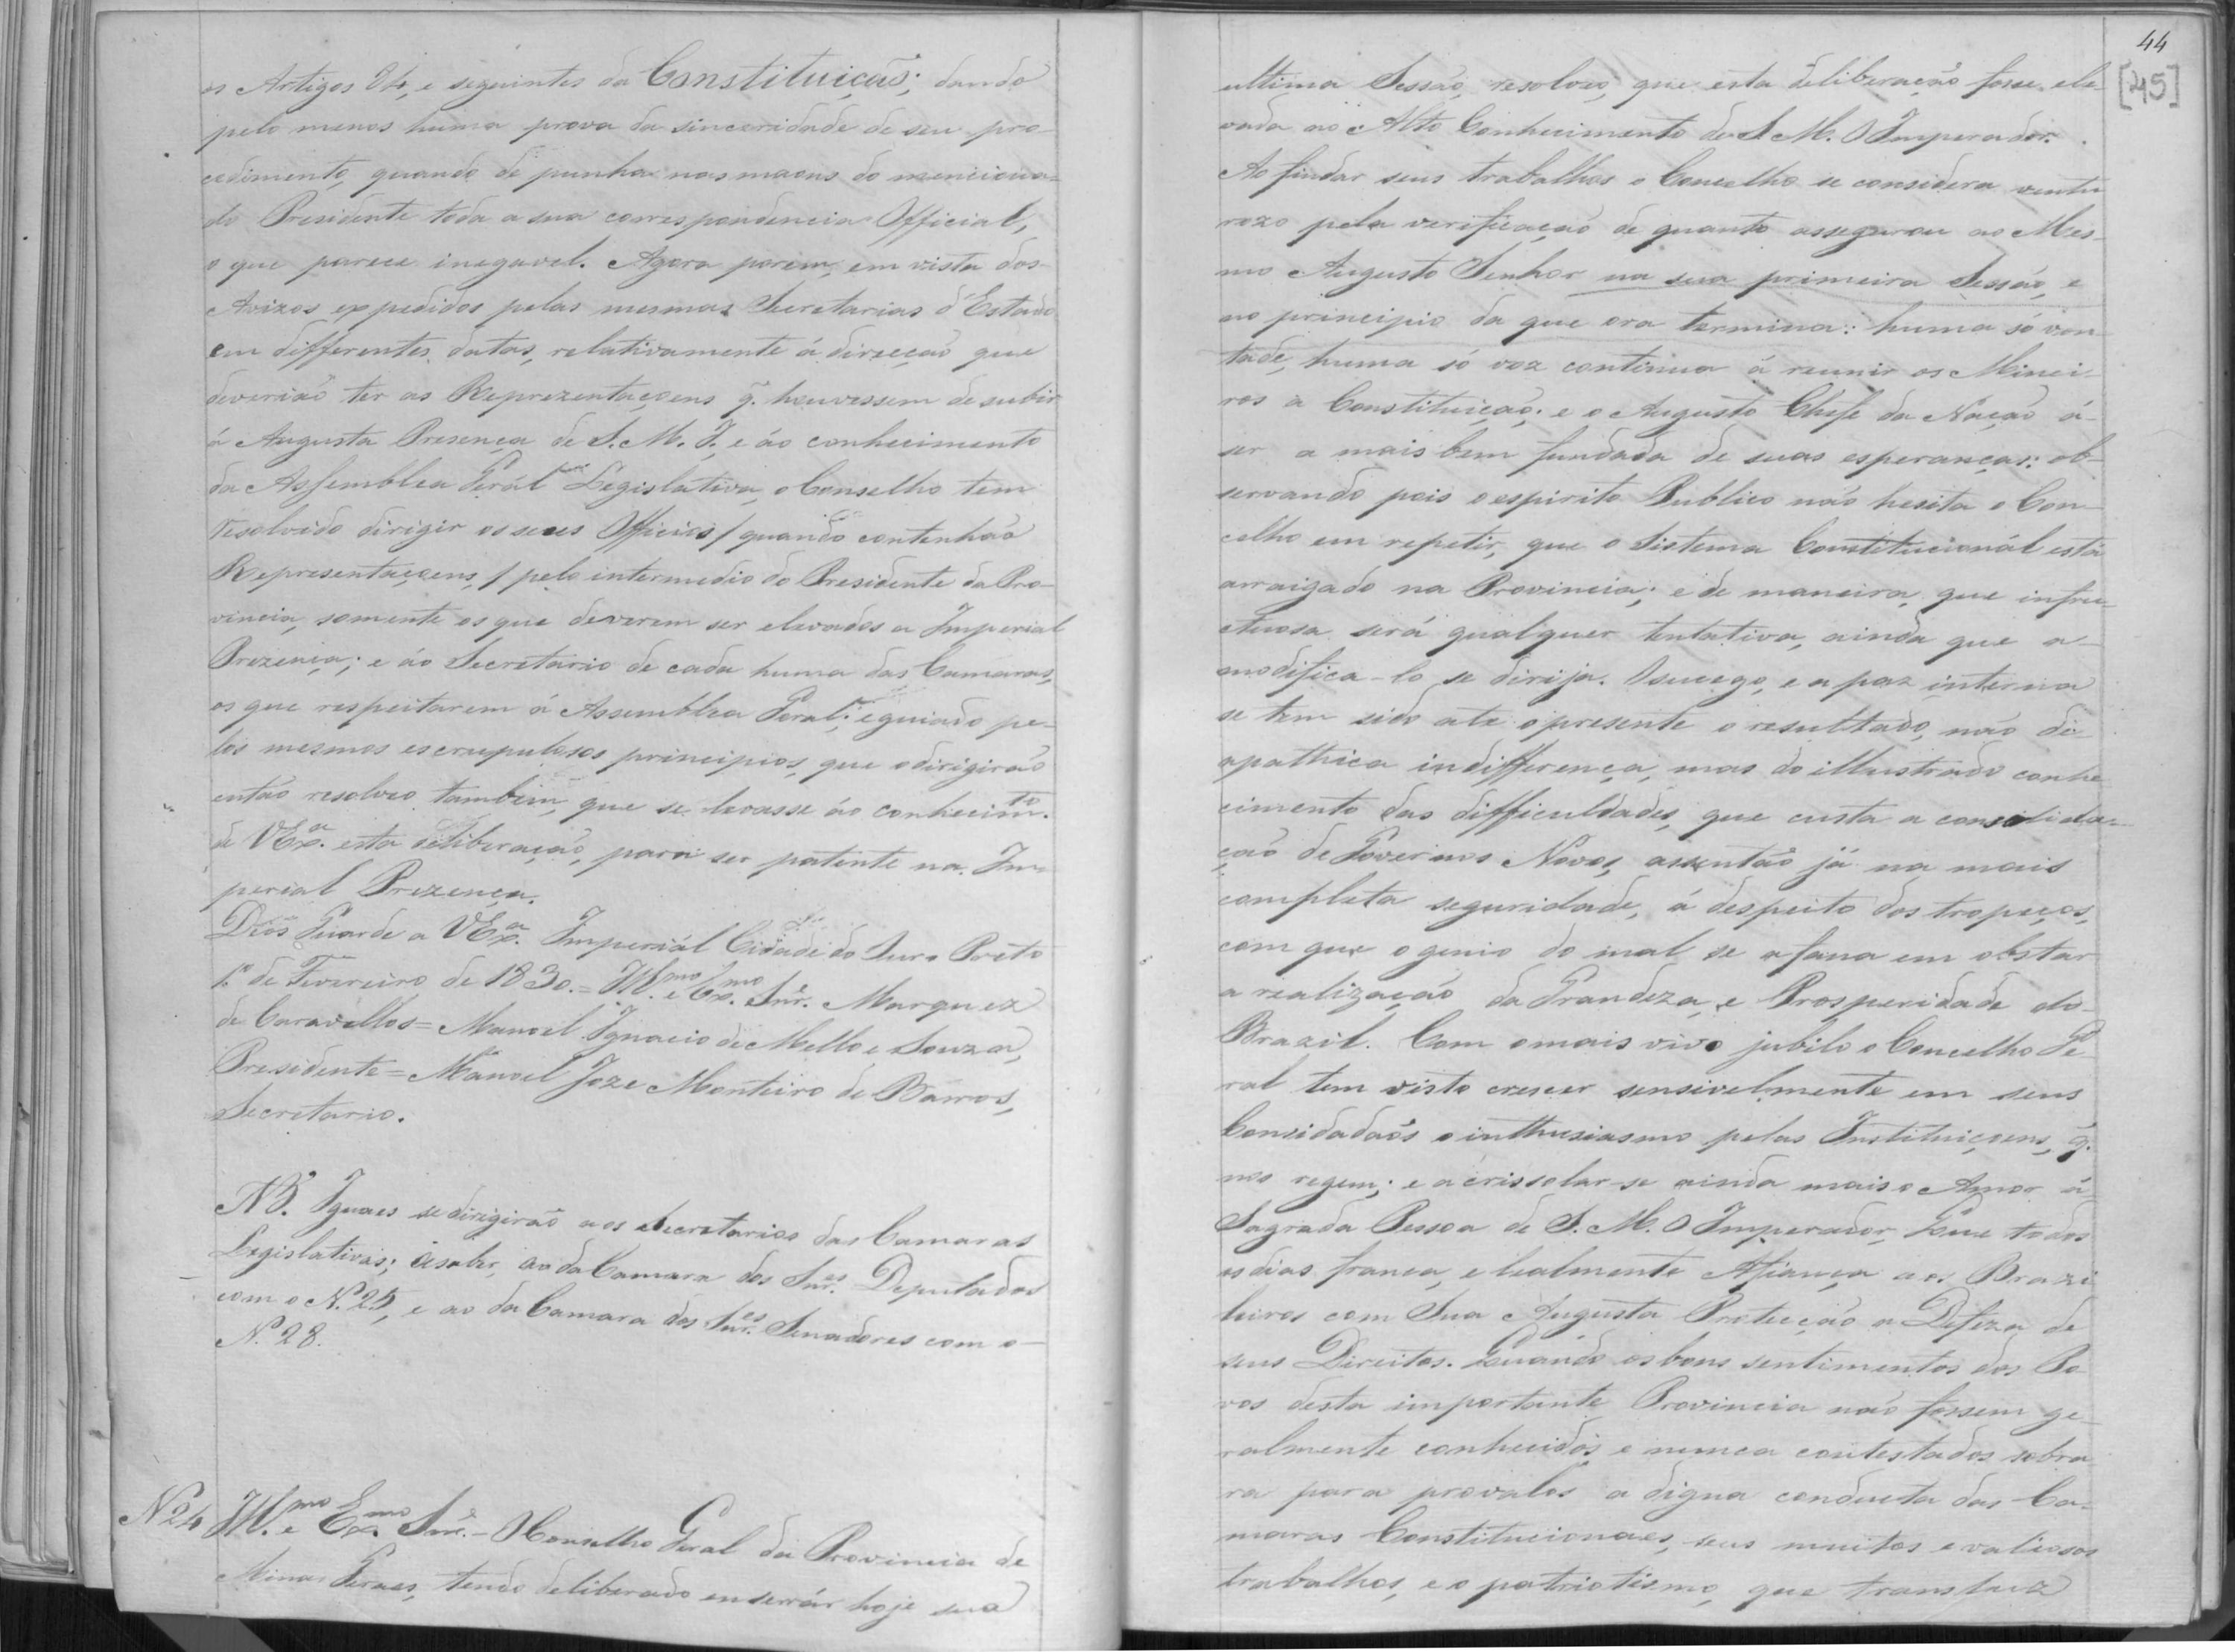 os Artigos 84, e seguintes da Constituiçaõ; dando
pelo menos huma prova da sinceridade de seu pro-
cedimento, quando de punha nas maons do menciona-
do Presidente toda a sua correspondencia Official,
o que parece inegavel. Agora porem, em vista dos
Avizos expedidos pelas mesmas Secretarias d'Estado
em differentes datas, relativamente á direcçaõ que
deveriaõ ter as Reprezentaçoens q̃. houvessem de subir
á Augusta Presença de S. M. I. e áo conhecimento
da Assemblea Gerál Legislativa, o Conselho tem
resolvido dirigir os seus Officios / quando contenhaõ
Representaçoens, / pelo intermedio do Presidente da Pro-
vincia, somente os que deverem ser elevados a Imperial
Prezença; e áo Secretario de cada huma das Camaras,
os que respeitarem á Assemblea Geral; e guiado pe-
los mesmos escrupulosos principios, que o dirigiraõ
entaõ resolveo tambem, que se levasse áo conhecim.to
de V Ex.a esta deliberaçaõ, para ser patente na Im-
perial Prezença.
Deos Guarde a V Ex.a Imperiál Cidade do Ouro Preto
1.º de Fevereiro de 1830. = Ill.mo e Ex.mo Snr. Marquez
de Caravellas = Manoel Ignacio de Mello e Souza,
Presidente = Manoel Joze Monteiro de Barros,
Secretario.
NB. Iguaes se dirigiraõ aos Secretarios das Camaras
Legislativas; á saber, ao da Camara dos Snr.es Deputados
com o N. 25, e ao da Camara dos Snr.es Senadores com o
N. 28.
N 24 Ill.mo e Ex.mo Snr. - O Conselho Geral da Provincia de
Minas Geraes, tendo deliberado enserrár hoje sua
44
[45]
ultima Sessaõ, resolveo, que esta deliberaçaõ fosse ele-
vada ao Alto Conhecimento de S. M. O Imperador.
Ao findar seus trabalhos o Concelho se considera ventu
rozo pela verificaçaõ de quanto assegurou ao Mes-
mo Augusto Senhor na sua primeira Sessaõ, e
no principio da que ora termina: huma só von
tade, huma só voz continua á reunir os Minei-
ros a Constituiçaõ; e o Augusto Chefe da Naçaõ á
ser a mais bem fundada de suas esperanças: ob-
servando pois o espirito Publico naõ hesita o Con-
celho em repetir, que o Sistema Constitucionál está
arraigado na Provincia; e de maneira, que infru-
ctuosa será qualquer tentativa, ainda que a
modifica-lo se dirija. O socego, e a paz interna
se tem sido até o presente o resultado, naõ de
apathica indifferença, mas do illustrado conhe
cimento das difficuldades, que custa a consolida-
çaõ de Governos Novos, assentaõ já na mais
completa seguridade, á despeito dos tropeços,
com que o genio do mal se afana em obstar
a realizaçaõ da Grandeza, e Prosperidade do
Brazil. Com o mais vivo jubilo o Concelho Ge
ral tem visto crescer sensivelmente em seus
Concidadaõs o inthusiasmo pelas Instituiçoens, q̃.
nos regem; e acrissolar-se ainda mais o Amor á
Sagrada Pessoa de S. M. O Imperador, Que todos
os dias franca, e lealmente Afiança aos Brazi
leiros com Sua Augusta Protecçaõ a Defeza de
seus Direitos. Quando os bons sentimentos dos Po
vos desta importante Provincia naõ fossem ge-
ralmente conhecidos, e nunca contestados sobra
ra para provalos a digna conducta das Ca-
maras Constitucionaes, seus muitos e valiosos
trabalhos, e o patriotismo, que transluz